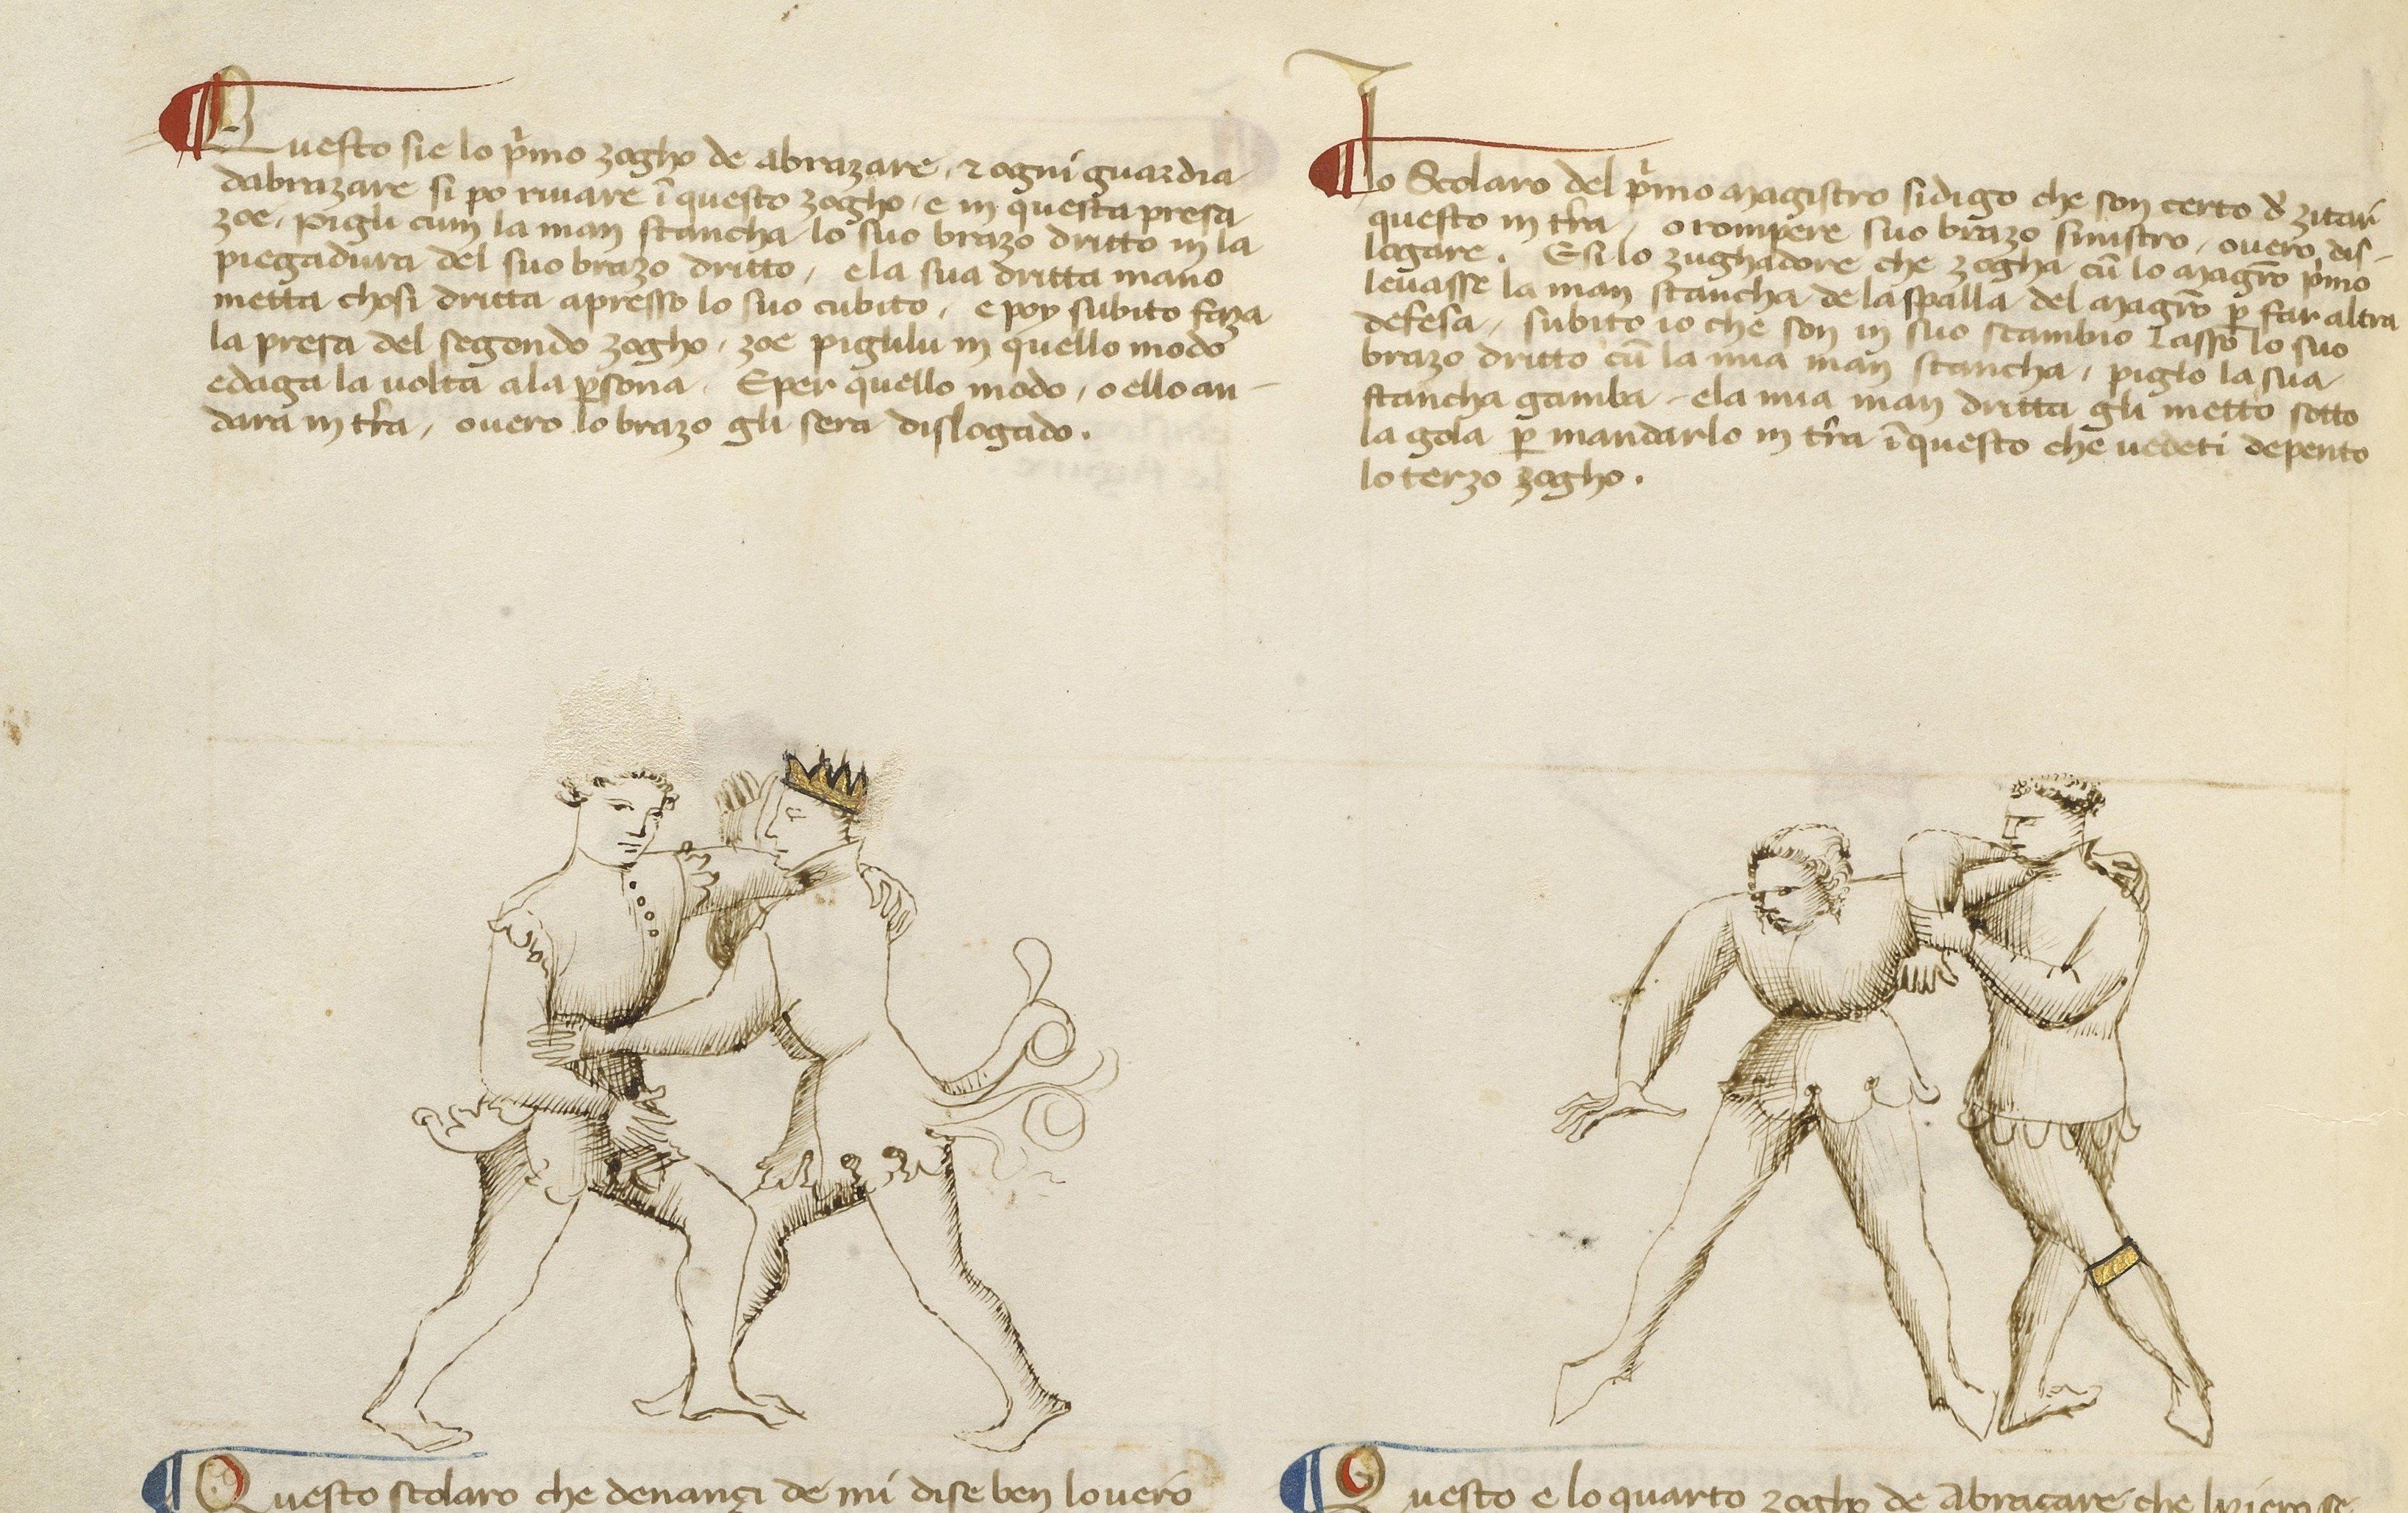 Questo sie lo p̃mo zogho de abrazare, ⁊ ogni guardia
dabrazare si po rivare ĩ questo zogho, e in questa presa
zoe, Pigli cum la man stancha lo suo brazo dritto in la
piegadura del suo brazo dritto, e la sua dritta mano
metta chosi dritta apresso lo suo cubito, e poy subito faza
la presa del segondo zogho, zoe piglilu in quello modo
e daga la volta a la ꝑsona. E per quello modo, o ello an-
dara in tr̃a, overo lo brazo gli sera dislogado.
Lo Scolaro del p̃mo magistro si digo che son certo d̃ zitar
questo in tr̃a, o rompere suo brazo sinistro, overo dis-
logare. E si lo zughadore che zogha cũ lo magr̃o p̃mo
levasse la man stancha de la spalla del magr̃o ꝑ far altra
defesa, subito io che son in suo scambio lasso lo suo
brazo dritto cũ la mia man stancha, piglo la sua
stancha gamba, e la mia man dritta gli metto sotto
la gola ꝑ mandarlo in tr̃a ĩ questo che vedeti depento
lo terzo zogho.
Questo scolaro che denançi de mi dise ben lo vero
Questo e lo quarto zogho de Abraçare che lizieramente se